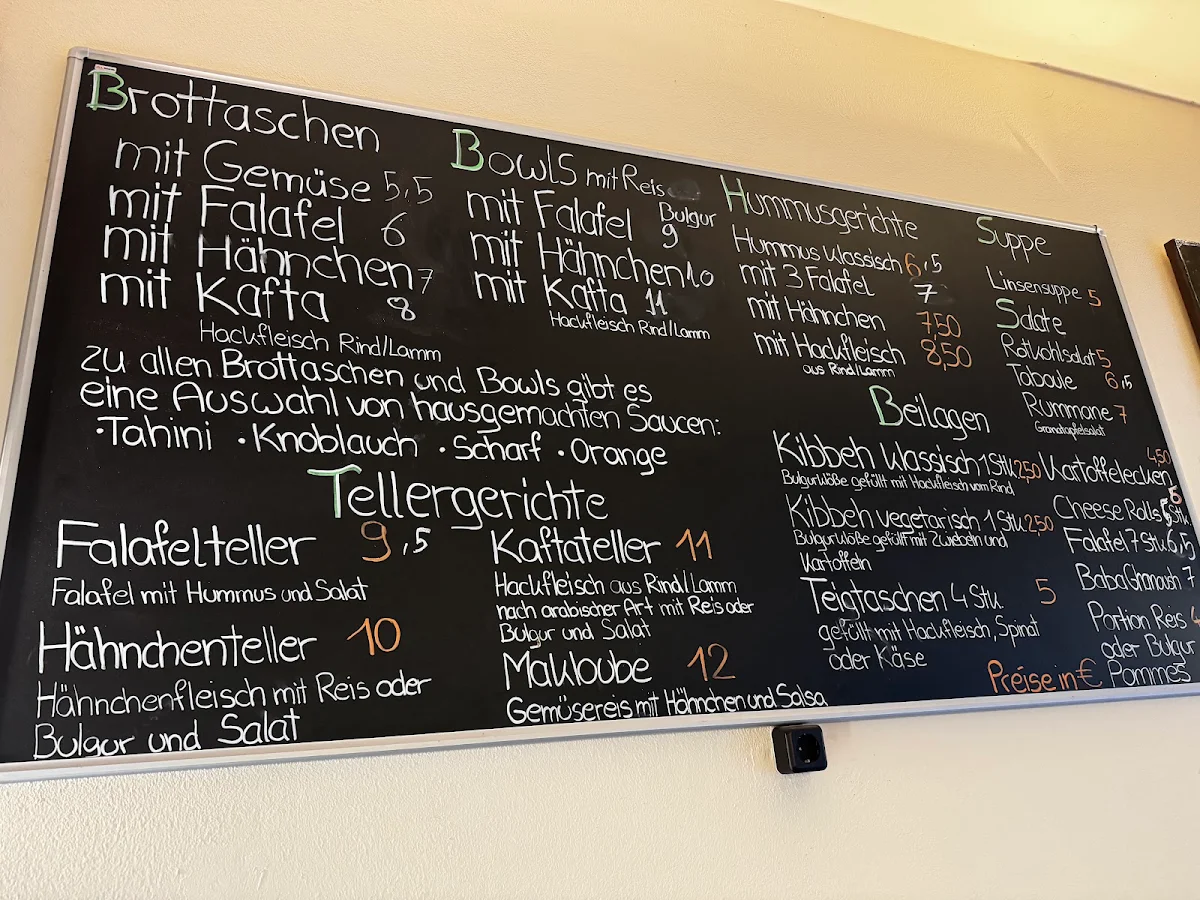 Brottaschen
mit Gemüse 5,5
mit Falafel 6
mit Hähnchen 7
mit Kafta 8
Hackfleisch Rind/Lamm
Bowls mit Reis
Bulgur
mit Falafel 9
mit Hähnchen 10
mit Kafta 11
Hackfleisch Rind/Lamm
zu allen Brottaschen und Bowls gibt es
eine Auswahl von hausgemachten Saucen:
·Tahini ·Knoblauch ·Scharf ·Orange
Tellergerichte
Falafelteller 9,5
Falafel mit Hummus und Salat
Hähnchenteller 10
Hähnchenfleisch mit Reis oder
Bulgur und Salat
Kaftateller 11
Hackfleisch aus Rind/Lamm
nach arabischer Art mit Reis oder
Bulgur und Salat
Makloube 12
Gemüsereis mit Hähnchen und Salsa
Hummusgerichte
Hummus klassisch 6,5
mit 3 Falafel 7
mit Hähnchen 7,50
mit Hackfleisch 8,50
aus Rind/Lamm
Suppe
Linsensuppe 5
Salate
Rotkohlsalat 5
Taboule 6,5
Rummane 7
Granatapfelsalat
Beilagen
Kibbeh klassisch 1 Stk 2,50
Bulgurklöße gefüllt mit Hackfleisch vom Rind
Kibbeh vegetarisch 1 Stk 2,50
Bulgurklöße gefüllt mit Zwiebeln und
Kartoffeln
Teigtaschen 4 Stk 5
gefüllt mit Hackfleisch, Spinat
oder Käse
Kartoffelecken 4,50
Cheese Rolls 5 Stk 5
Falafel 7 Stk 6,5
Baba Ghanoush 7
Portion Reis
oder Bulgur
Pommes
Preise in €